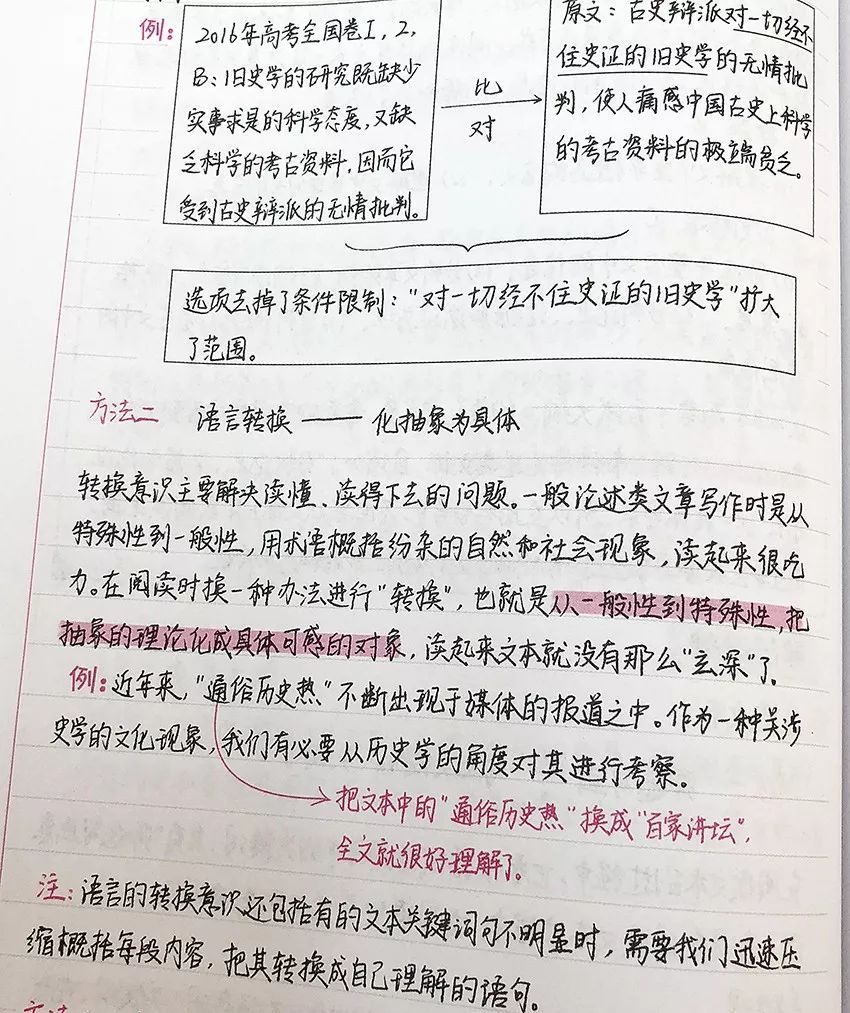 例：
2016年高考全国卷I，2，
B：旧史学的研究既缺少
实事求是的科学态度，又缺
乏科学的考古资料，因而它
受到古史辩派的无情批判。
比
对
原文：古史辩派对一切经不
住史证的旧史学的无情批
判，使人痛感中国古史上科学
的考古资料的极端贫乏。
选项去掉了条件限制："对一切经不住史证的旧史学"扩大
了范围。
方法二 语言转换——化抽象为具体
转换意识主要解决读懂、读得下去的问题。一般论述类文章写作时是从
特殊性到一般性，用术语概括纷杂的自然和社会现象，读起来很吃
力。在阅读时换一种办法进行"转换"，也就是从一般性到特殊性，把
抽象的理论化成具体可感的对象，读起来文本就没有那么"玄深"了。
例：近年来，"通俗历史热"不断出现于媒体的报道之中。作为一种关涉
史学的文化现象，我们有必要从历史学的角度对其进行考察。
把文本中的"通俗历史热"换成"百家讲坛"，
全文就很好理解了。
注：语言的转换意识还包括有的文本关键词句不明显时，需要我们迅速压
缩概括每段内容，把其转换成自己理解的语句。